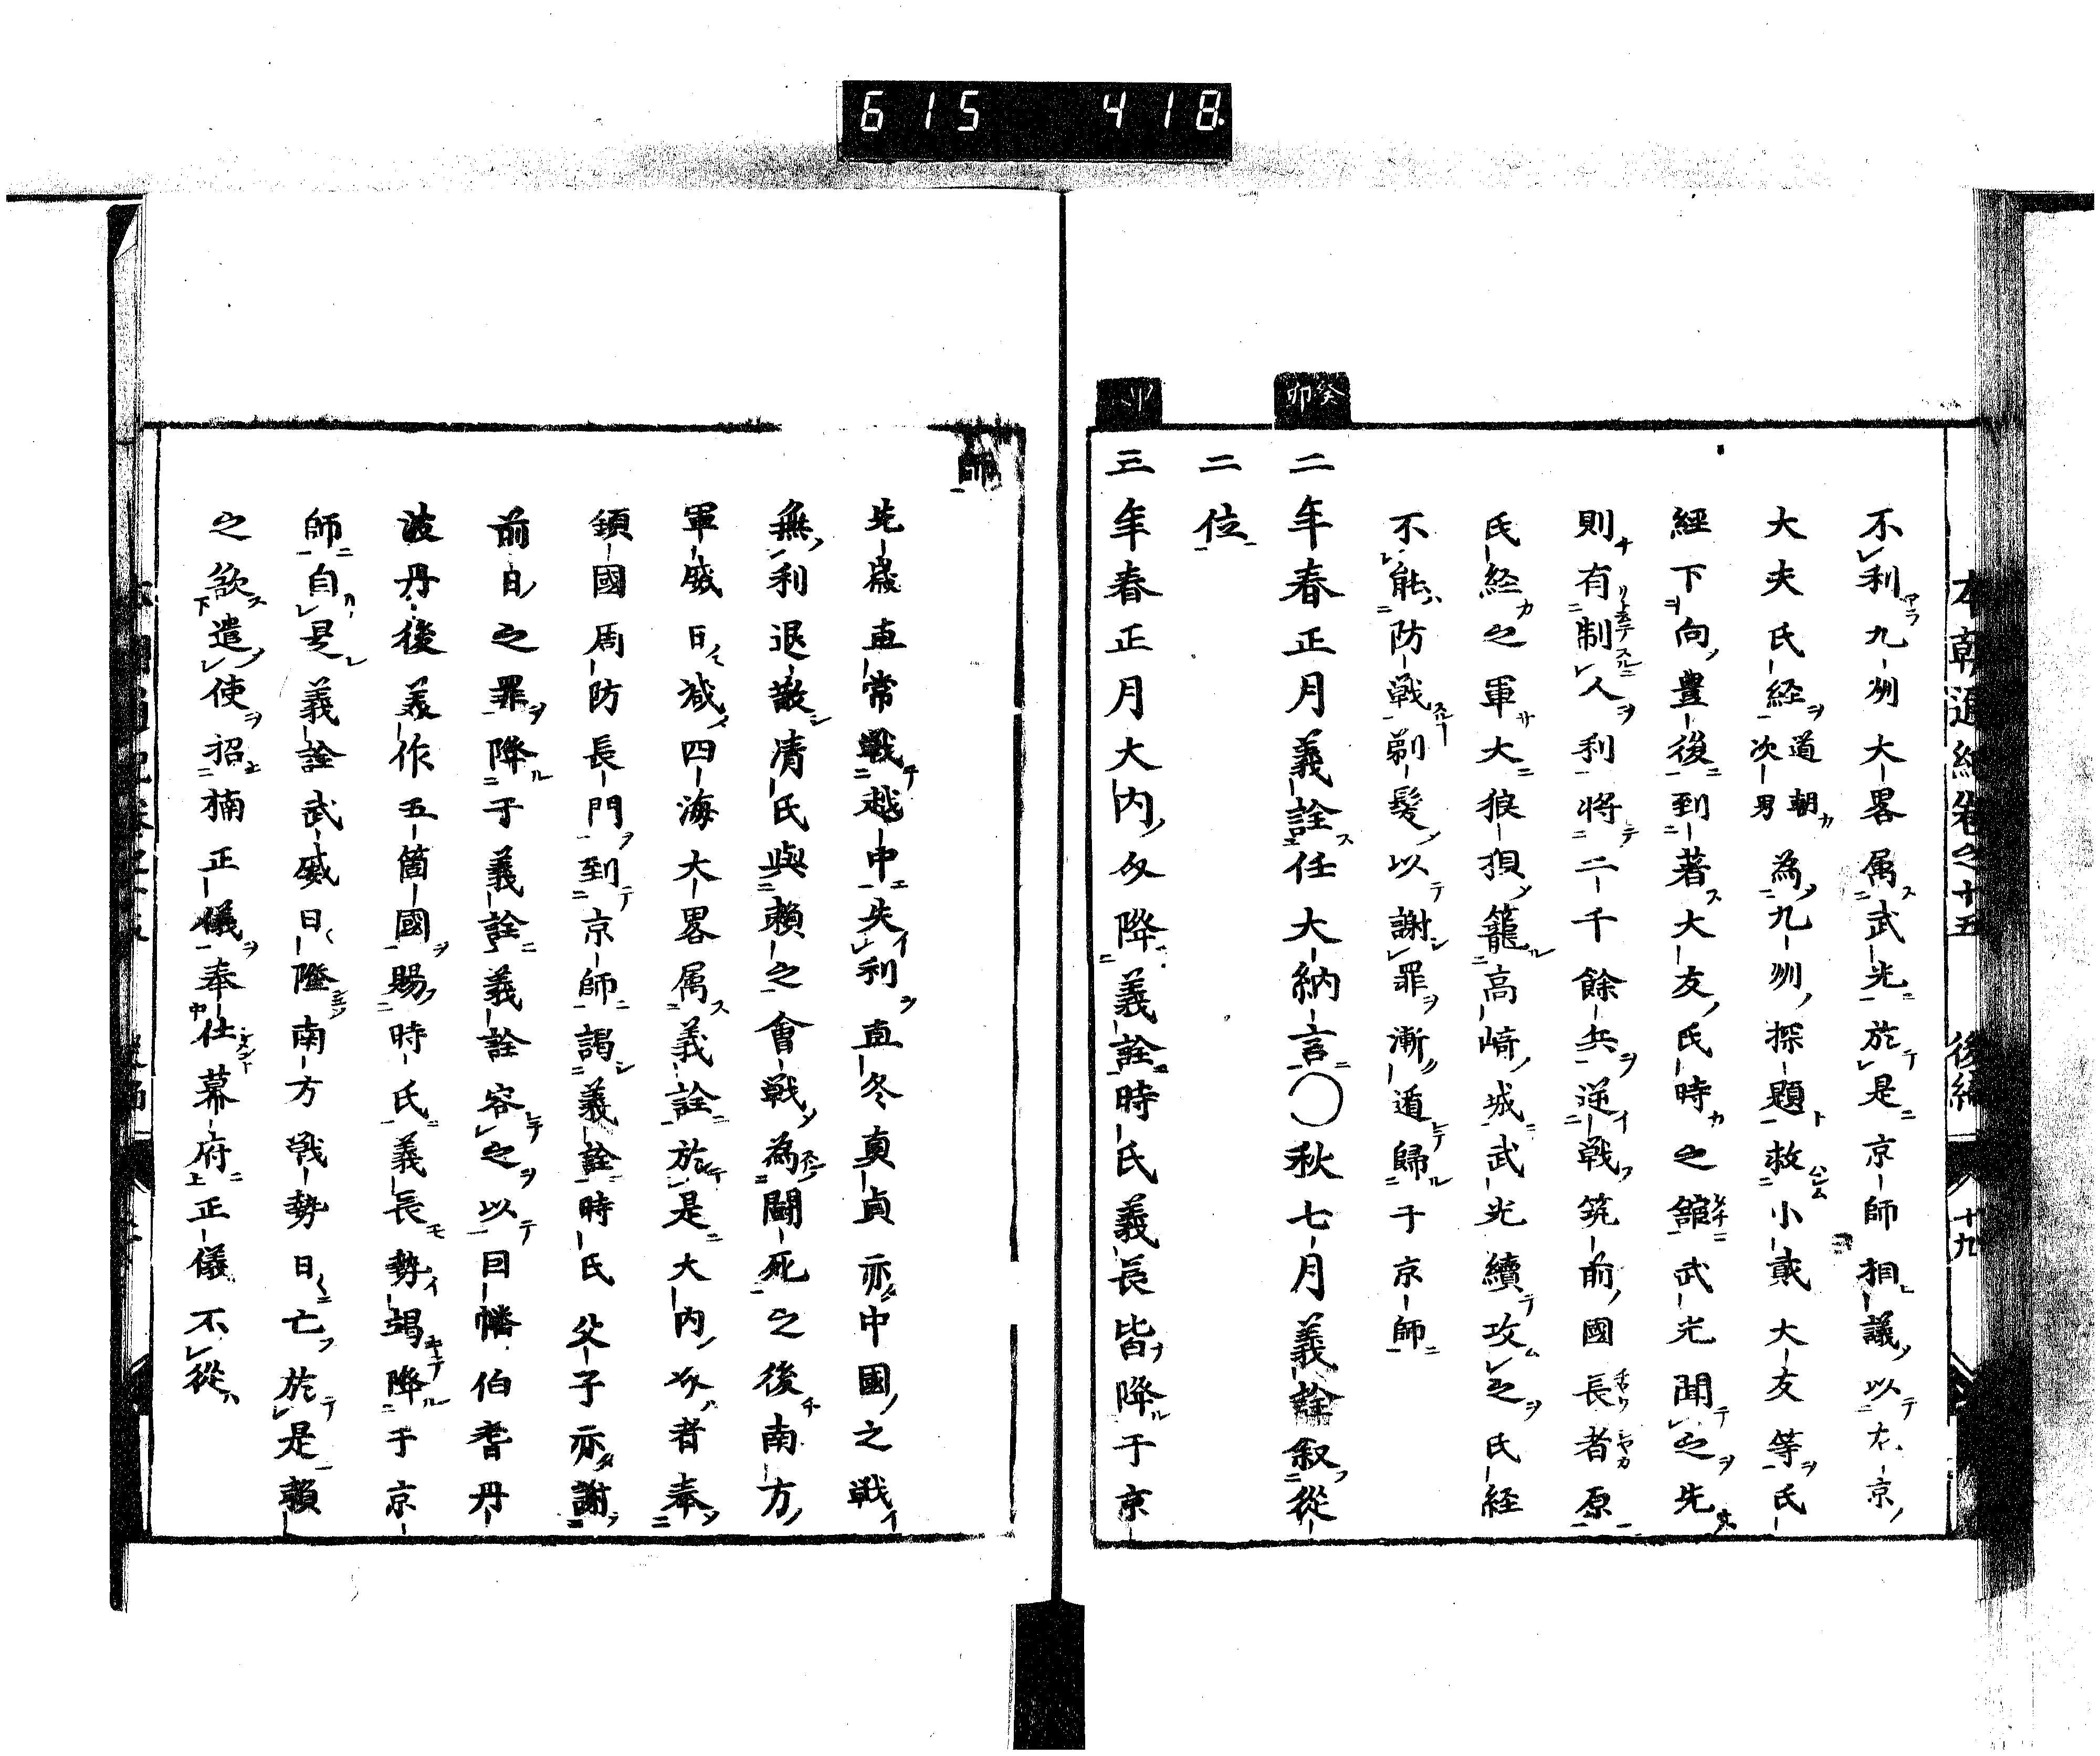 615 418
本朝通紀卷之十五 後編 十九
不利九州大畧属武光於是京師相議以左京
大夫氏経道朝次男為九州探題救小貳大友等氏
經下向豊後到著大友氏時之舘武光聞之先
則有制人利将二千餘兵逆戦筑前國長者原
氏経之軍大狼狽籠高﨑城武光續攻之氏経
不能防戦剃髪以謝罪漸遁歸于京師
癸卯
二年春正月義詮任大納言〇秋七月義詮叙從
二位
三年春正月大内及降義詮時氏義長皆降于京
師
先嵗直常戦越中失利直冬頁貞亦中國之戦
無利退散清氏與頼之會戦為闘死之後南方
軍威日減四海大畧属義詮於是大内以者奉
領國周防長門到京師謁義詮時氏父子亦謝
前日之罪降于義詮義詮容之以因幡伯耆丹
波丹後美作五箇國賜時氏義長勢竭降于京
師自是義詮武威日隆南方戦勢日亡於是頼
之欲遣使招楠正儀奉仕幕府正儀不從